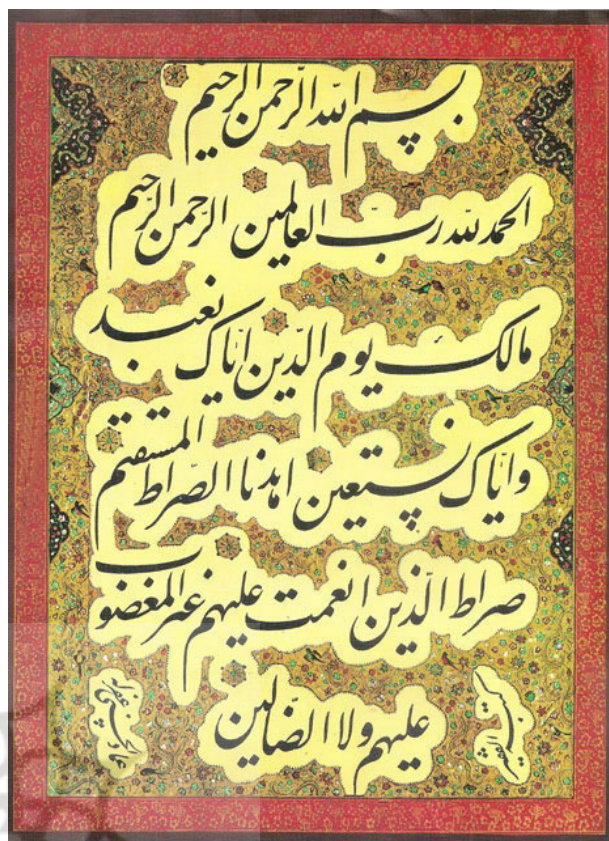 بسم الله الرحمن الرحيم
الحمد لله ربّ العالمين الرّحمن الرّحيم
مالك يوم الدّين ايّاك نعبد
و ايّاك نستعين اهدنا الصّراط المستقيم
صراط الّذين انعمت عليهم غير المغضوب
عليهم ولا الضّالين